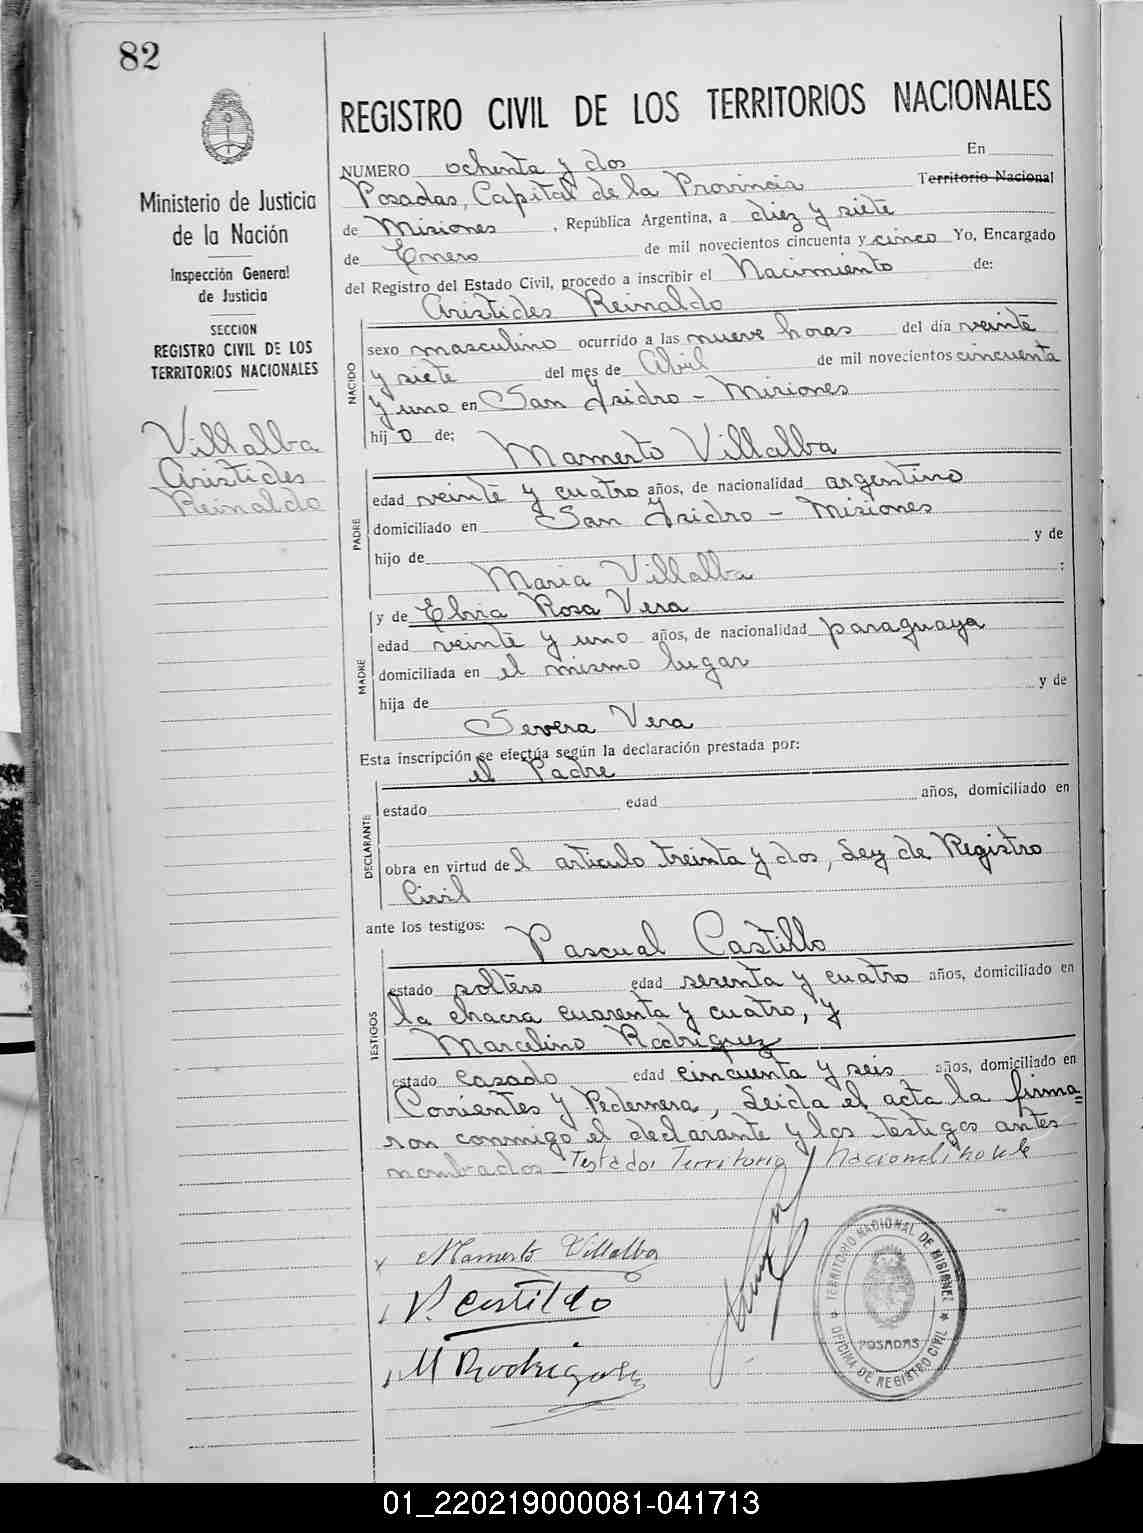 82
REGISTRO CIVIL DE LOS TERRITORIOS NACIONALES
Ministerio de Justicia
de la Nación
Inspección General
de Justicia
SECCION
REGISTRO CIVIL DE LOS
TERRITORIOS NACIONALES
Villalba
Aristides
Reinaldo
NUMERO ochenta y dos En
Posadas, Capital de la Provincia Territorio Nacional
de Misiones, República Argentina, a diez y siete
de Enero de mil novecientos cincuenta y cinco Yo, Encargado
del Registro del Estado Civil, procedo a inscribir el Nacimiento de:
Aristides Reinaldo
NACIDO
sexo masculino ocurrido a las nueve horas del día veinte
y siete del mes de Abril de mil novecientos cincuenta
y uno en San Isidro - Misiones
hijo de:
Mamerto Villalba
PADRE
edad veinte y cuatro años, de nacionalidad argentino
domiciliado en San Isidro - Misiones
hijo de y de
Maria Villalba :
y de Elvia Rosa Vera
MADRE
edad veinte y uno años, de nacionalidad paraguaya
domiciliada en el mismo lugar
hija de y de
Severa Vera
Esta inscripción se efectúa según la declaración prestada por:
el Padre
DECLARANTE
estado edad años, domiciliado en
obra en virtud del articulo treinta y dos, Ley de Registro
Civil
ante los testigos:
Pascual Castillo
TESTIGOS
estado soltero edad sesenta y cuatro años, domiciliado en
la chacra cuarenta y cuatro, y
Marcelino Rodriguez
estado casado edad cincuenta y seis años, domiciliado en
Corrientes y Pedernera, Leida el acta la firma=
ron conmigo el declarante y los testigos antes
nombrados - Testado: Territorio Nacional: no vale
x Mamerto Villalba
P. Castildo
M Rodriguez
TERRITORIO NACIONAL DE MISIONES
POSADAS
OFICINA DE REGISTRO CIVIL
01_220219000081-041713